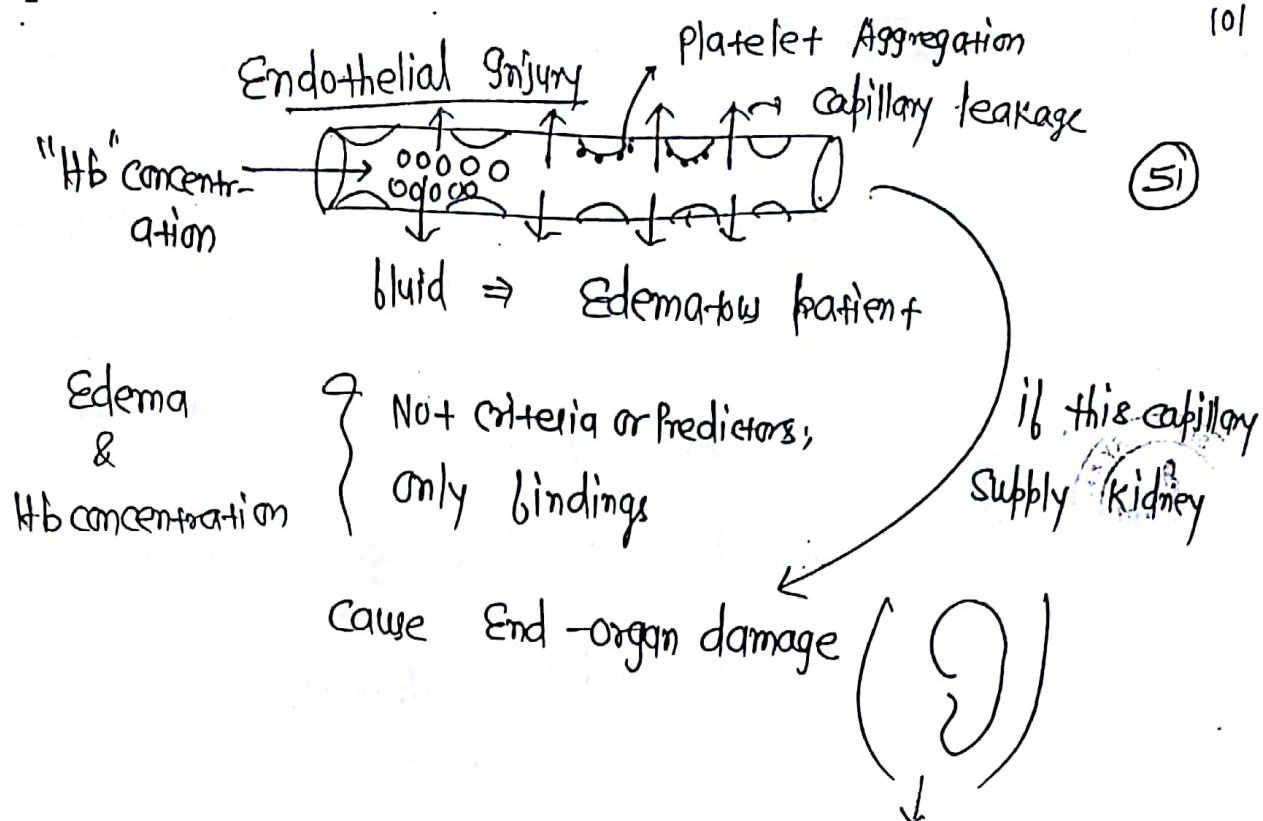 101
Platelet Aggregation
Endothelial Injury
capillary leakage
"Hb" concentr-
ation
51
fluid ⇒ Edematous patient
Edema
&
Hb concentration
Not criteria or Predictors;
only findings
if this capillary
supply kidney
Cause End-organ damage